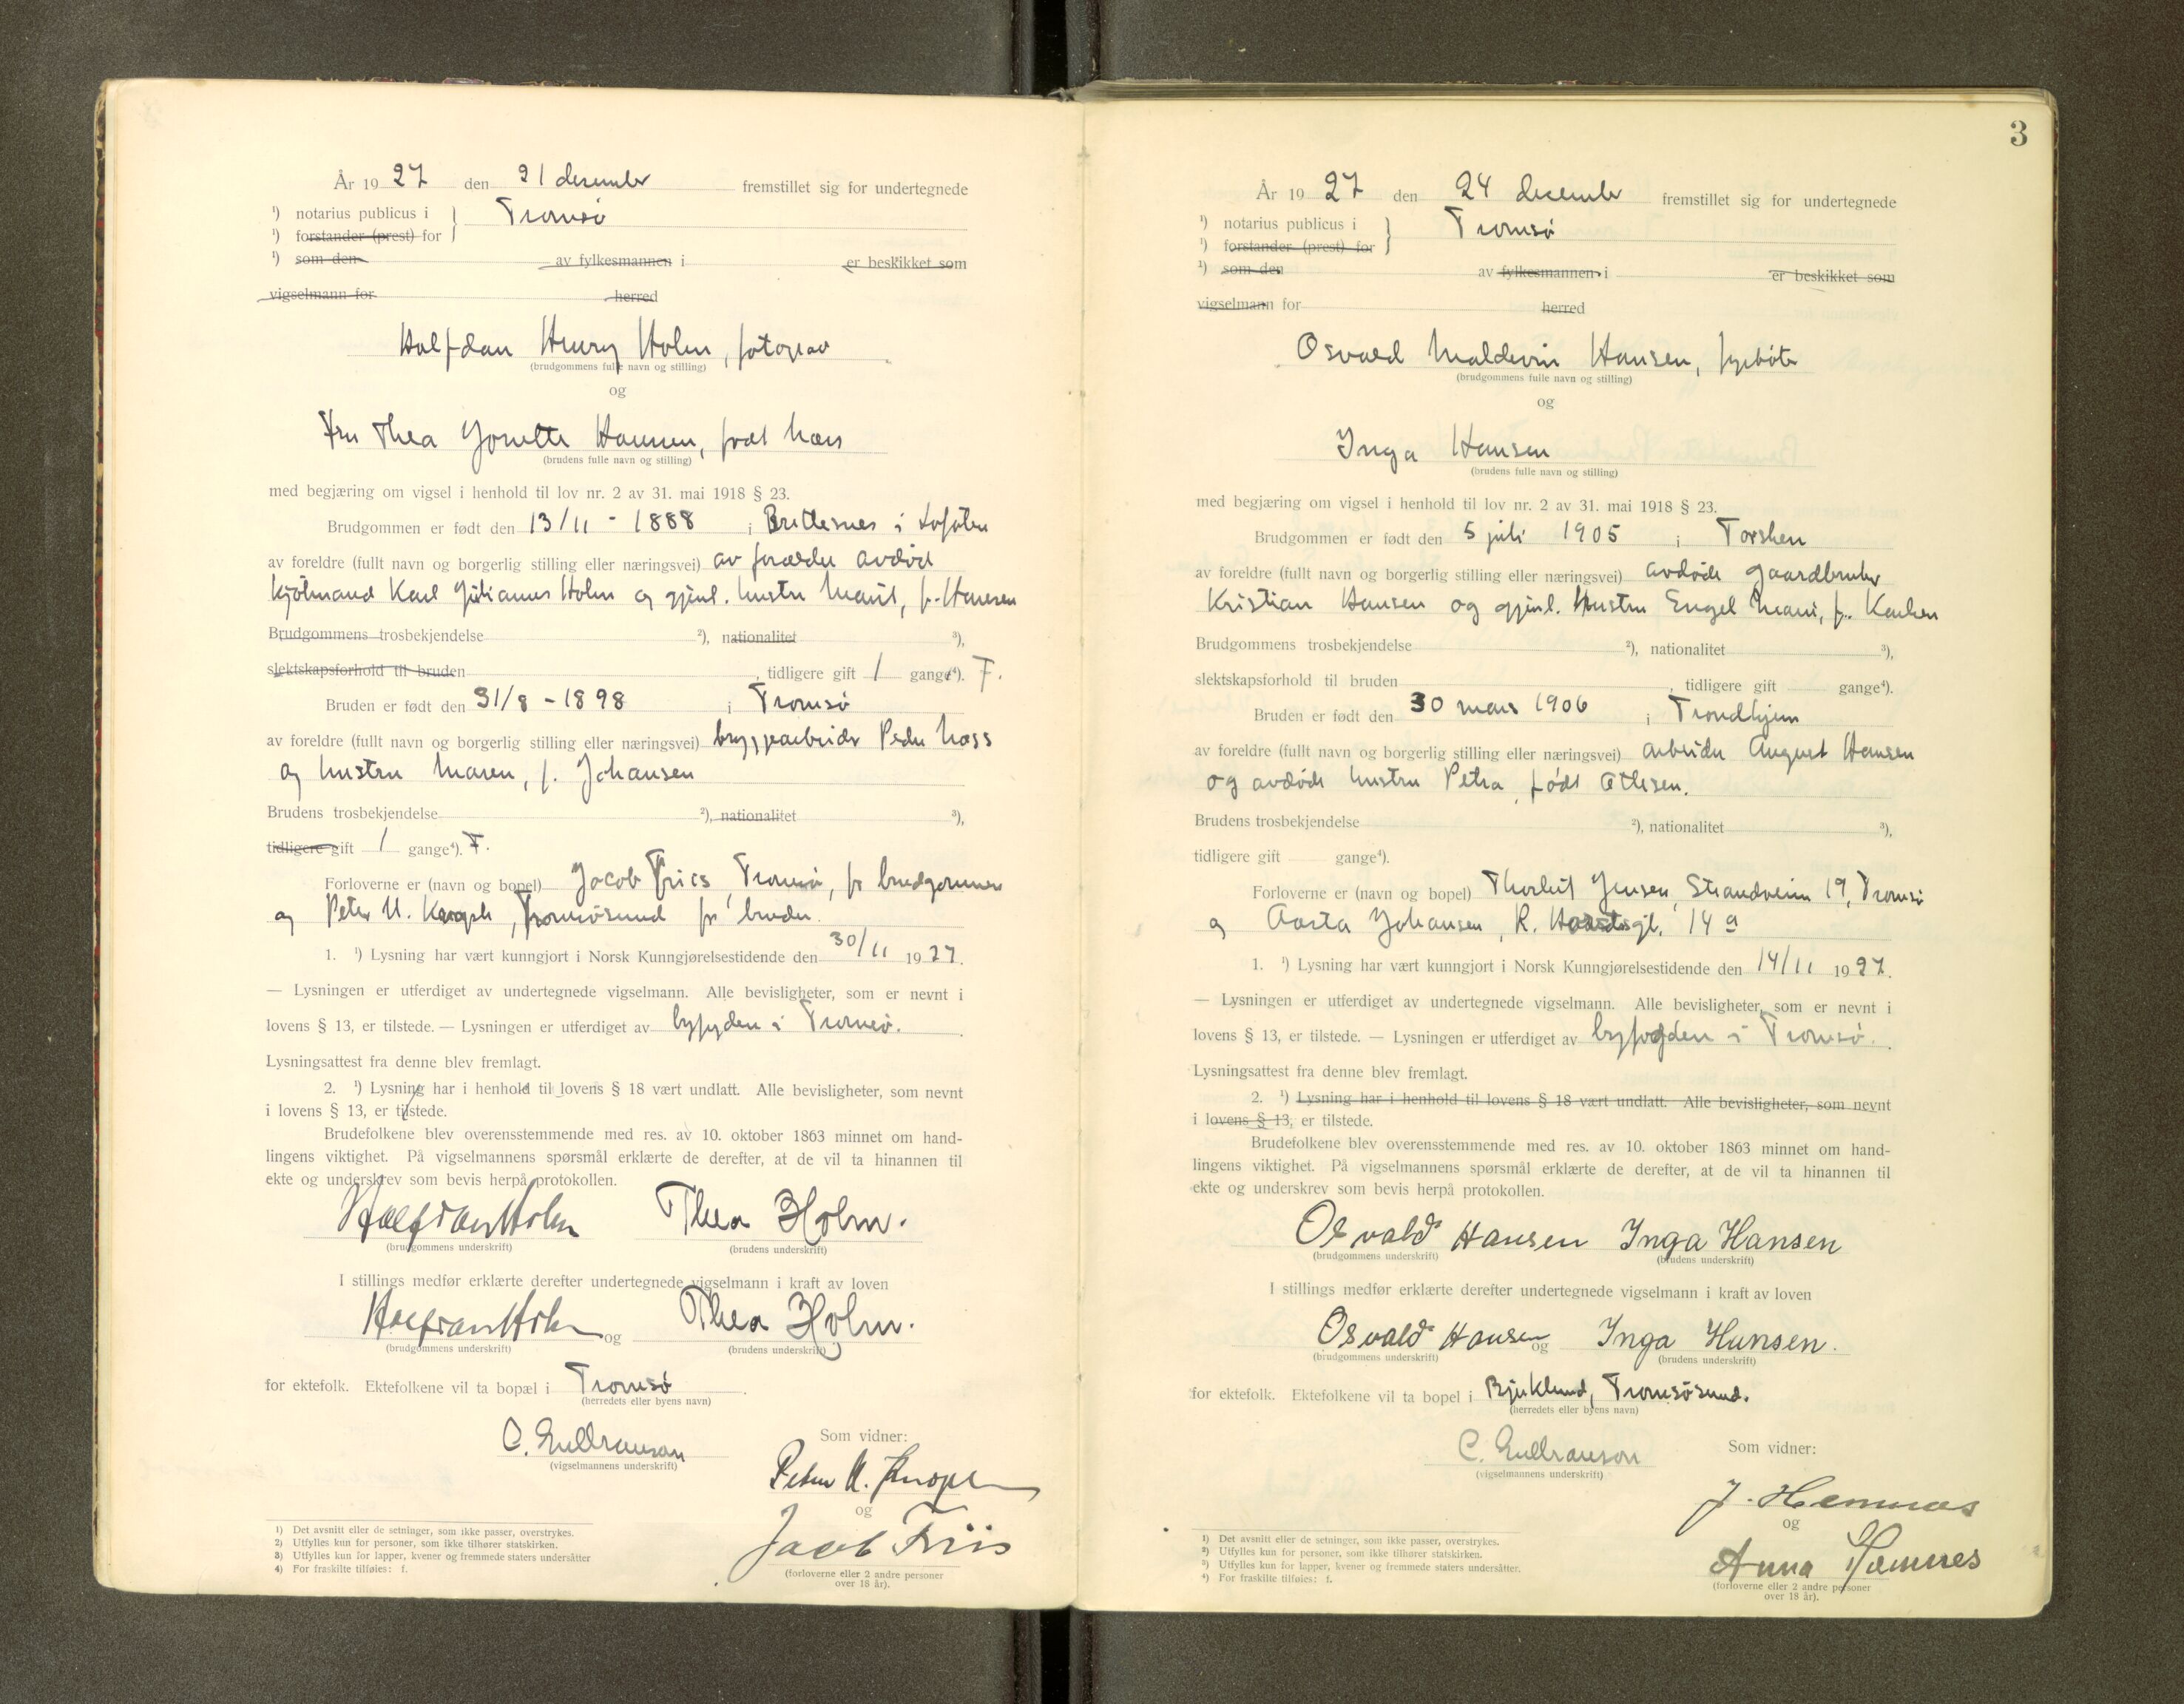 År 1927 den 21 desember fremstillet sig for undertegnede
¹) notarius publicus i } Tromsø
¹) forstander (prest) for
¹) som den av fylkesmannen i er beskikket som
vigselmann for herred
Halfdan Henry Holm, fotograv
(brudgommens fulle navn og stilling)
og
Fru Thea Jonette Hansen, født
(brudens fulle navn og stilling)
med begjæring om vigsel i henhold til lov nr. 2 av 31. mai 1918 § 23.
Brudgommen er født den 13/11 - 1888 i Brettesnes i Lofoten
av foreldre (fullt navn og borgerlig stilling eller næringsvei) av forældre avdød
Karl Holm og gjenl. hustru f. Hansen
Brudgommens trosbekjendelse ²), nationalitet ³),
slektskapsforhold til bruden , tidligere gift 1 gange⁴). F.
Bruden er født den 31/8 - 1898 i Tromsø
av foreldre (fullt navn og borgerlig stilling eller næringsvei) bryggearbeider Peder
og hustru Maren, f. Johansen
Brudens trosbekjendelse ²), nationalitet ³),
tidligere gift 1 gange⁴). F.
Forloverne er (navn og bopel) Jacob Friis, Tromsø, for brudgommen
og Peter U. Tromsøsund for bruden.
1. ¹) Lysning har vært kunngjort i Norsk Kunngjørelsestidende den 30/11 1927.
— Lysningen er utferdiget av undertegnede vigselmann. Alle bevisligheter, som er nevnt i
lovens § 13, er tilstede. — Lysningen er utferdiget av byfogden i Tromsø.
Lysningsattest fra denne blev fremlagt.
2. ¹) Lysning har i henhold til lovens § 18 vært undlatt. Alle bevisligheter, som nevnt
i lovens § 13, er tilstede.
Brudefolkene blev overensstemmende med res. av 10. oktober 1863 minnet om hand-
lingens viktighet. På vigselmannens spørsmål erklærte de derefter, at de vil ta hinannen til
ekte og underskrev som bevis herpå protokollen.
Halfdan Holm Thea Holm.
(brudgommens underskrift) (brudens underskrift)
I stillings medfør erklærte derefter undertegnede vigselmann i kraft av loven
Halfdan Holm og Thea Holm.
(brudgommens underskrift) (brudens underskrift)
for ektefolk. Ektefolkene vil ta bopæl i Tromsø
(herredets eller byens navn)
C. Gulbranson
(vigselmannens underskrift)
Som vidner:
Peter U.
og
Jacob Friis
(forloverne eller 2 andre personer
over 18 år).
1) Det avsnitt eller de setninger, som ikke passer, overstrykes.
2) Utfylles kun for personer, som ikke tilhører statskirken.
3) Utfylles kun for lapper, kvener og fremmede staters undersåtter
4) For fraskilte tilføies: f.
3
År 1927 den 24 desember fremstillet sig for undertegnede
¹) notarius publicus i } Tromsø
¹) forstander (prest) for
¹) som den av fylkesmannen i er beskikket som
vigselmann for herred
Osvald Maldevin Hansen, fyrbøter
(brudgommens fulle navn og stilling)
og
Inga Hansen
(brudens fulle navn og stilling)
med begjæring om vigsel i henhold til lov nr. 2 av 31. mai 1918 § 23.
Brudgommen er født den 5 juli 1905 i Torsken
av foreldre (fullt navn og borgerlig stilling eller næringsvei) avdøde gaardbruker
Kristian Hansen og gjenl. hustru Engel Marie, f. Karlsen
Brudgommens trosbekjendelse ²), nationalitet ³),
slektskapsforhold til bruden , tidligere gift gange⁴).
Bruden er født den 30 mars 1906 i Trondhjem
av foreldre (fullt navn og borgerlig stilling eller næringsvei) arbeider August Hansen
og avdøde hustru Petra, født Ottesen.
Brudens trosbekjendelse ²), nationalitet ³),
tidligere gift gange⁴).
Forloverne er (navn og bopel) Jensen, Strandveien 19, Tromsø
og Aasta Johansen, R. 14 a
1. ¹) Lysning har vært kunngjort i Norsk Kunngjørelsestidende den 14/11 1927.
— Lysningen er utferdiget av undertegnede vigselmann. Alle bevisligheter, som er nevnt i
lovens § 13, er tilstede. — Lysningen er utferdiget av byfogden i Tromsø.
Lysningsattest fra denne blev fremlagt.
2. ¹) Lysning har i henhold til lovens § 18 vært undlatt. Alle bevisligheter, som nevnt
i lovens § 13, er tilstede.
Brudefolkene blev overensstemmende med res. av 10. oktober 1863 minnet om hand-
lingens viktighet. På vigselmannens spørsmål erklærte de derefter, at de vil ta hinannen til
ekte og underskrev som bevis herpå protokollen.
Osvald Hansen Inga Hansen
(brudgommens underskrift) (brudens underskrift)
I stillings medfør erklærte derefter undertegnede vigselmann i kraft av loven
Osvald Hansen og Inga Hansen.
(brudgommens underskrift) (brudens underskrift)
for ektefolk. Ektefolkene vil ta bopel i Tromsøsund.
(herredets eller byens navn)
C. Gulbranson
(vigselmannens underskrift)
Som vidner:
J. Hemnes
og
Anna Hemnes
(forloverne eller 2 andre personer
over 18 år).
1) Det avsnitt eller de setninger, som ikke passer, overstrykes.
2) Utfylles kun for personer, som ikke tilhører statskirken.
3) Utfylles kun for lapper, kvener og fremmede staters undersåtter.
4) For fraskilte tilføies: f.